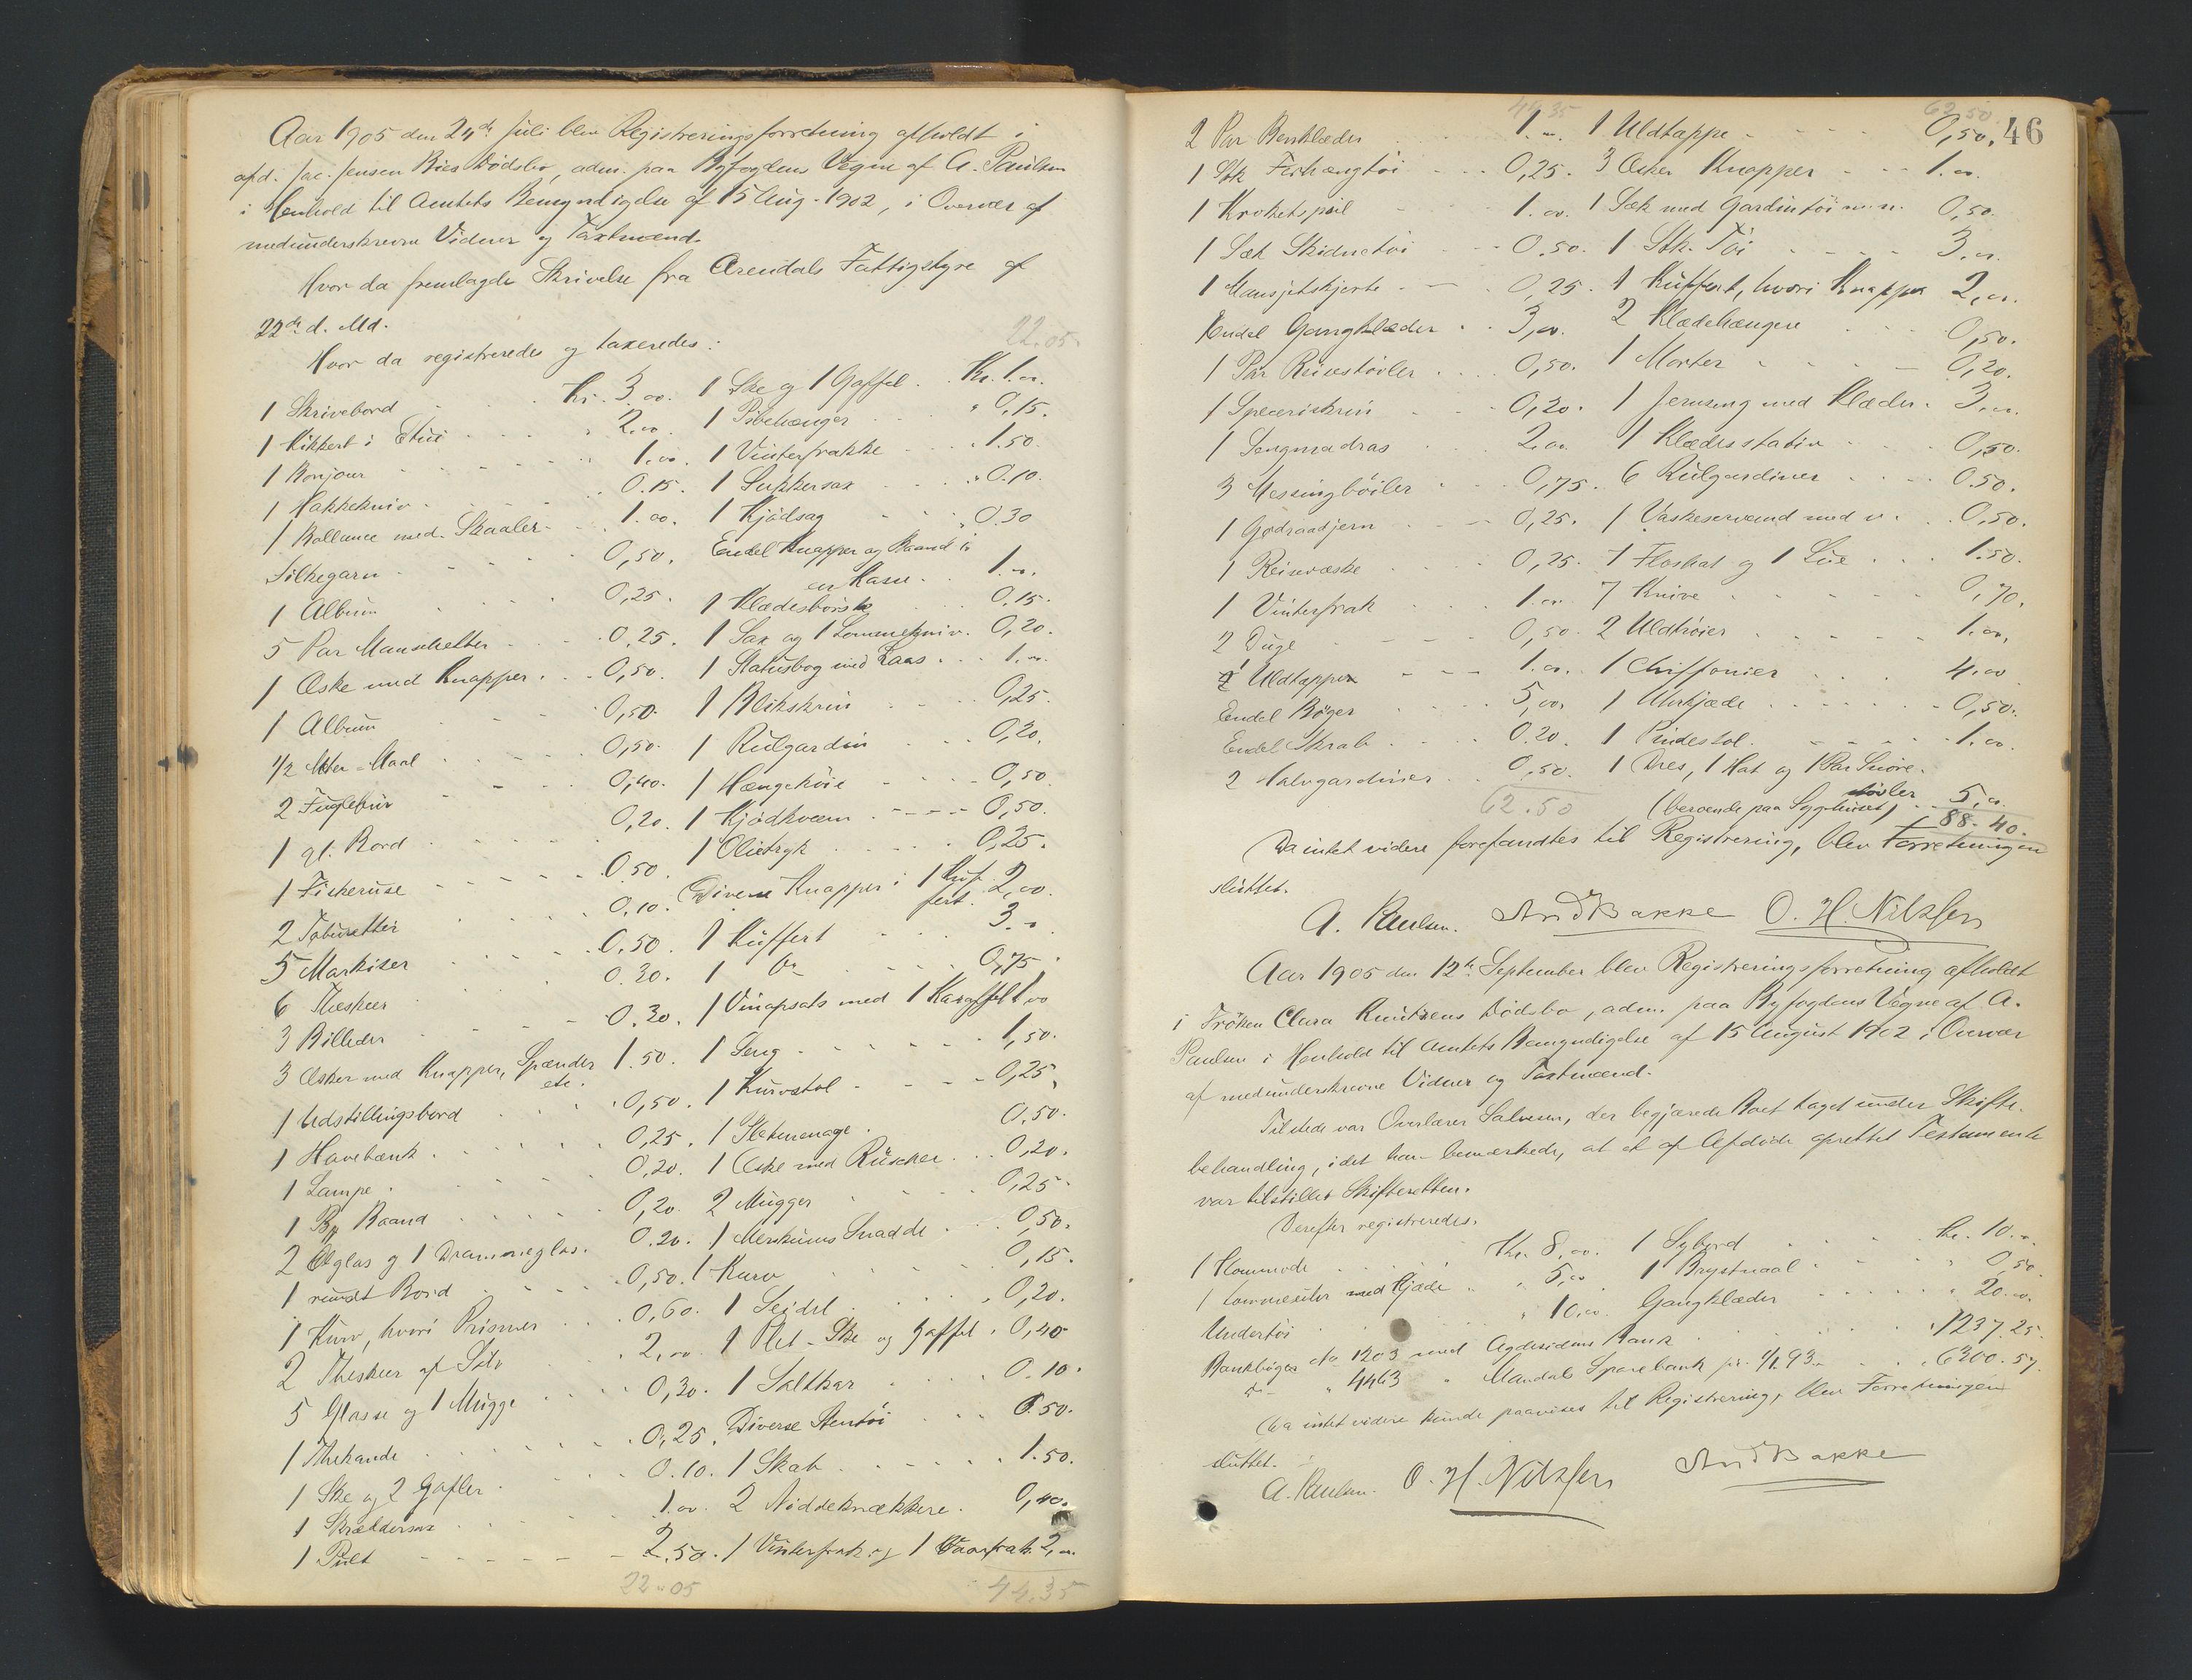 Aar 1905 den 24de Juli blev Registreringsforretning afholdt i
afd. Jac. Jensen Ries Dødsbo, adm. paa Byfogdens Vegne af A. Paulsen
i Henhold til Amtets Bemyndigelse af 15 Aug. 1902, i Overvær af
medunderskrevne Vidner og Taxtmænd.
Hvor da fremlagdes Skrivelse fra Arendals Fattigstyre af
22de d. Md.
Hvor da registreredes og taxeredes:
22.05
1 Skrivebord Kr. 3,00.
1 Kikkert i Etui " 2,00
1 Bonjour 1.00.
1 Hakkekniv 0.15.
1 Ballance med Skaaler 1.00.
Silkegarn 0,50.
1 Album 0,25.
5 Par Manschetter 0.25.
1 Æske med Knapper 0,50.
1 Album 0,50.
1/2 Meter-Maal 0,50.
2 Fuglebur 0,40.
1 gl. Bord 0,20.
1 Fiskeruse 0.50
2 Taburetter 0.10.
5 Markiser 0.50.
6 Theskeer 0.30.
3 Billeder 0.30.
3 Æsker med Knapper, Spænder etc. 1.50.
1 Udstillingsbord 0,50.
1 Havebænk 0,25.
1 Lampe 0,20.
1 Baand 0,20.
2 Ølglas og 1 Drammeglas. 0.20.
1 rundt Bord 0,50.
1 Kurv, hvori Prismer 0,60.
2 Theskeer af Sølv 2,00.
5 Glasse og 1 Mugge 0,30.
1 Thekande 0,25.
1 Ske og 2 Gafler 0.10.
1 Skræddersax 1.00.
1 Pult 2.50.
22.05
1 Ske og 1 Gaffel Kr. 1.00.
1 Pibehænger " 0,15.
1 Vinterfrakke " 1.50.
1 Sukkersax " 0.10.
1 Kjødsag " 0.30
Endel Knapper og Baand i
en Kasse 1.00.
1 Klædesbørste 0.15.
1 Sax og 1 Lommekniv. 0,20.
1 Statusbog med Laas 1.00.
1 Blikskrin 0,25.
1 Rulgardin 0,20.
1 Hængekøie 0,50
1 Kjødkværn 0,50.
1 Olietryk 0,25.
Diverse Knapper i 1 Kuffert. 2,00.
1 Kuffert 3.00
1 Do 0,75.
1 Vinopsats med 1 Karaffel 1,00
1 Seng 1,50.
1 Kurvstol 0,25.
1 Platmenage 0.50.
1 Æske med Rüscher 0,20.
2 Mugger 0,25.
1 Merskums Snadde 0,50.
1 Kurv 0,15.
1 Seidel 0,20.
1 Plet-Ske og Gaffel 0,40
1 Saltkar 0.10.
Diverse Stentøi 0.50.
1 Skab 1.50.
2 Nøddeknækkere. 0,40.
1 Vinterfrak og 1 Vaarfrak 2,00.
44.35
46
44.35
2 Par Benklæder 1.00.
1 Stk Forhængtøi 0,25.
1 Kroketspil 1.00.
1 Sæk Skidnetøi 0.50.
1 Mansjetskjorte 0,25.
Endel Gangklæder 3,00.
1 Par Reisestøvler 0,50.
1 Speceriskrin 0,20.
1 Sengmadras 2.00.
3 Messingbøiler 0,75.
1 Godraadjern 0,25.
1 Reisevæske 0,25.
1 Vinterfrak 1.00.
2 Duge 0,50.
1 Uldtæppe 1.00.
Endel Bøger 5,00.
Endel Skrab 0.20.
2 Halvgardiner 0,50.
62.50
62.50
1 Uldtæppe 0,50.
3 Æsker Knapper 1.00.
1 Sæk med Gardintøi m.m. 0,50.
1 Stk. Tøi 3.00.
1 Kuffert, hvori Knapper 2,00.
2 Klædehængere 0,50.
1 Morter 0,20.
1 Jernseng med Klæder. 3,00.
1 Klædesstativ 0,50.
6 Rulgardiner 0.50.
1 Vaskeservand med v. 0,50.
1 Floshat og 1 Lue 1.50.
7 Knive 0,70.
2 Uldtrøier 1.00.
1 Chiffonier 4.00
1 Uhrkjæde 0,50.
1 Pindestol. 1.00.
1 Dres, 1 Hat og 1 Par Snørestøvler
(beroende paa Sygehuset) 5,00.
88.40.
Da intet videre forefandtes til Registrering, blev Forretningen
sluttet.
A. Paulsen. And Bakke O. H. Nilssen
Aar 1905 den 12te September blev Registreringsforretning afholdt
i Frøken Clara Knutzens Dødsbo, adm. paa Byfogdens Vegne af A.
Paulsen i Henhold til Amtets Bemyndigelse af 15 August 1902 i Overvær
af medunderskrevne Vidner og Taxtmænd.
Tilstede var Overlærer Salvesen, der begjærede Boet taget under Skifte-
behandling, idet han bemærkede, at et af Afdøde oprettet Testamente
var tilstillet Skifteretten.
Derefter registreredes.
1 Kommode Kr. 8,00. 1 Sybord Kr. 10.00.
1 Lommeuhr med Kjæde " 5,00 1 Brystnaal " 0,50
Undertøi " 10,00. Gangklæder " 20.00.
Bankbøger No 1203 med Agdesidens Bank " 1237.25.
do " 4463 " Mandals Sparebank pr. 1/1 93 " 6300.57.
Da intet videre kunde paavises til Registrering, blev Forretningen
sluttet.
A. Paulsen. O. H. Nilssen And Bakke